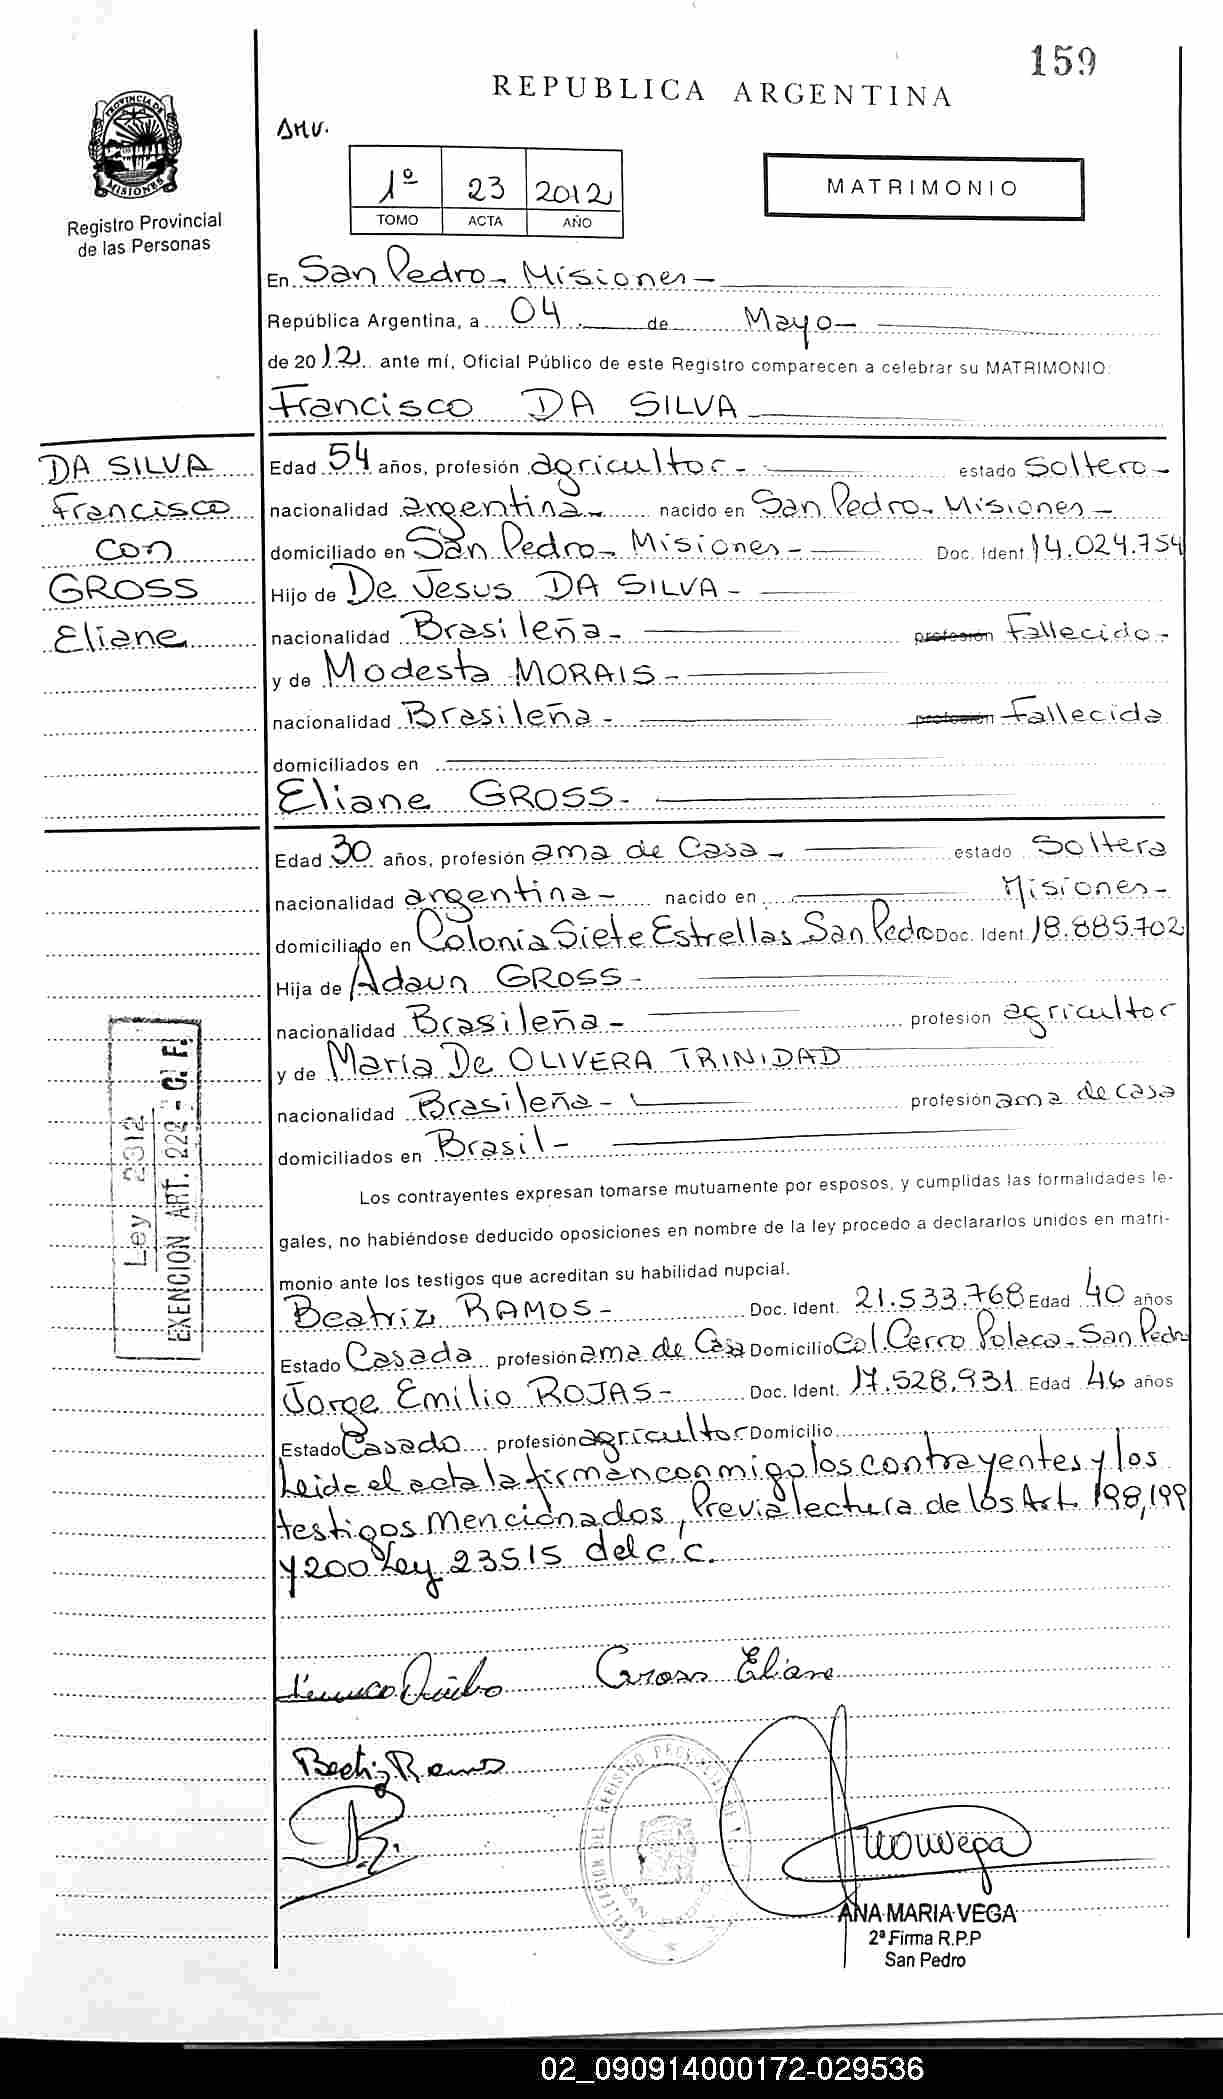 159
REPUBLICA ARGENTINA
PROVINCIA DE
MISIONES
Registro Provincial
de las Personas
AMV.
1º 23 2012
TOMO ACTA AÑO
MATRIMONIO
En San Pedro - Misiones -
República Argentina, a 04 de Mayo -
de 2012 ante mí, Oficial Público de este Registro comparecen a celebrar su MATRIMONIO:
Francisco DA SILVA
DA SILVA
Francisco
con
GROSS
Eliane
Edad 54 años, profesión agricultor - estado Soltero -
nacionalidad argentina - nacido en San Pedro - Misiones -
domiciliado en San Pedro - Misiones - Doc. Ident. 14.024.754
Hijo de De Jesus DA SILVA -
nacionalidad Brasileña - profesión Fallecido -
y de Modesta MORAIS -
nacionalidad Brasileña - profesión Fallecida
domiciliados en
Eliane GROSS -
Edad 30 años, profesión ama de casa - estado Soltera
nacionalidad argentina - nacido en Misiones -
domiciliado en Colonia Siete Estrellas San Pedro Doc. Ident. 18.885.702
Hija de Adaun GROSS -
nacionalidad Brasileña - profesion agricultor
y de Maria De OLIVERA TRINIDAD
nacionalidad Brasileña - profesión ama de casa
domiciliados en Brasil -
Los contrayentes expresan tomarse mutuamente por esposos, y cumplidas las formalidades le-
gales, no habiéndose deducido oposiciones en nombre de la ley procedo a declararlos unidos en matri-
monio ante los testigos que acreditan su habilidad nupcial.
Beatriz RAMOS - Doc. Ident. 21.533.768 Edad 40 años
Estado Casada profesión ama de Casa Domicilio Col. Cerro Polaca - San Pedro
Jorge Emilio ROJAS - Doc. Ident. 17.528.931 Edad 46 años
Estado Casado profesión agricultor Domicilio
Leida el acta la firman conmigo los contrayentes y los
testigos mencionados, Previa lectura de los Art. 198,199
y 200 Ley 23515 del c.c.
Ley 2312
EXENCION ART. 222 - C. F.
Gross Eliane
Beatriz Ramos
SAN PEDRO
ANA MARIA VEGA
2ª Firma R.P.P
San Pedro
02_090914000172-029536